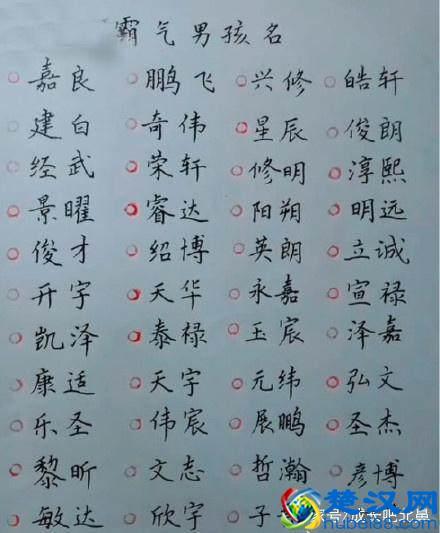 霸气男孩名
嘉良 鹏飞 兴修 皓轩
建白 奇伟 星辰 俊朗
经武 荣轩 修明 淳熙
景曜 睿达 阳朔 明远
俊才 绍博 英朗 立诚
开宇 天华 永嘉 宣禄
凯泽 泰禄 玉宸 泽嘉
康适 天宇 元纬 弘文
乐圣 伟宸 展鹏 圣杰
黎昕 文志 哲瀚 彦博
敏达 欣宇 子
楚汉网
hubei88.com